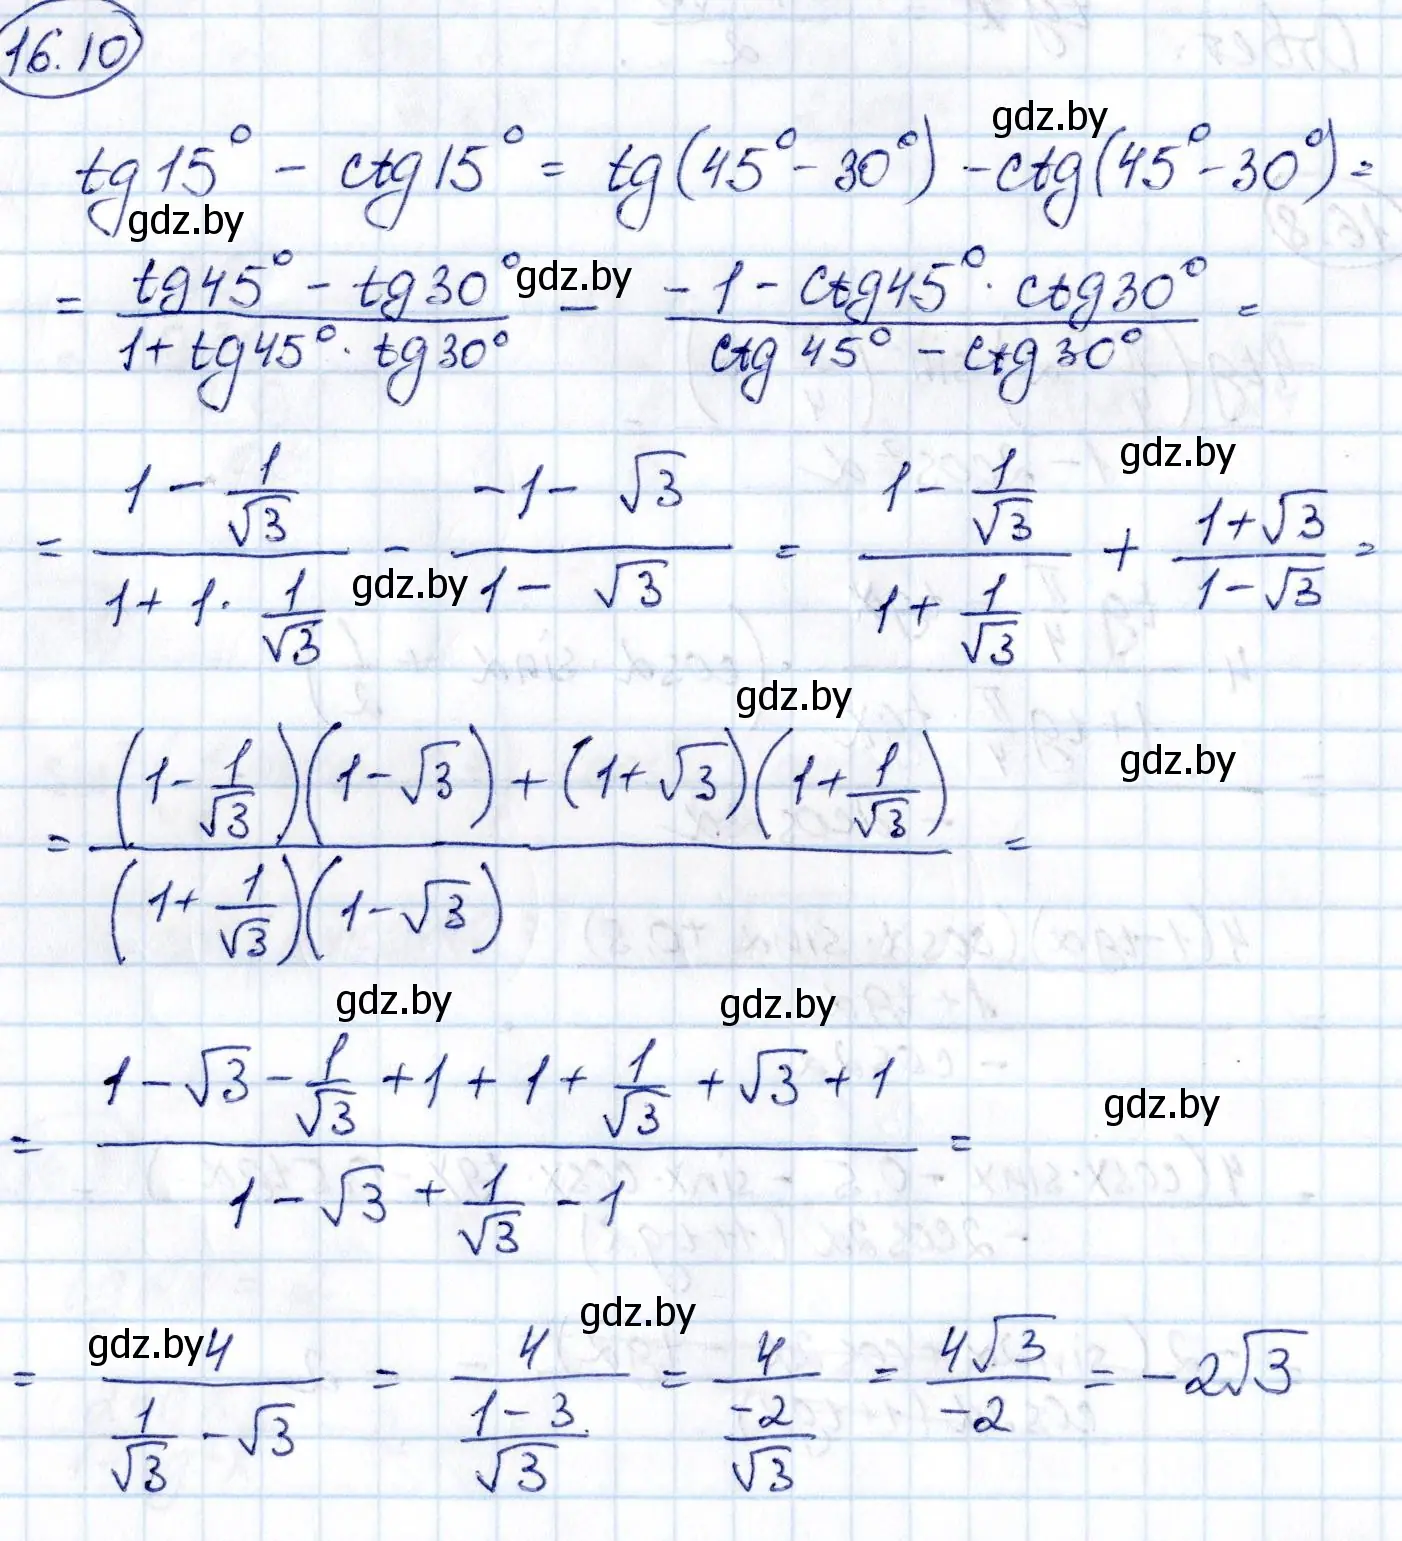 16.10
gdz.by
tg15° - ctg15° = tg(45° - 30°) - ctg(45° - 30°) =
gdz.by
= (tg45° - tg30°)/(1 + tg45° · tg30°) - (-1 - ctg45° · ctg30°)/(ctg45° - ctg30°) =
gdz.by
gdz.by
= (1 - 1/√3)/(1 + 1 · 1/√3) - (-1 - √3)/(1 - √3) = (1 - 1/√3)/(1 + 1/√3) + (1 + √3)/(1 - √3) =
gdz.by
gdz.by
gdz.by
= ((1 - 1/√3)(1 - √3) + (1 + √3)(1 + 1/√3))/((1 + 1/√3)(1 - √3)) =
gdz.by gdz.by
= (1 - √3 - 1/√3 + 1 + 1 + 1/√3 + √3 + 1)/(1 - √3 + 1/√3 - 1) =
gdz.by
gdz.by
gdz.by
= 4/(1/√3 - √3) = 4/((1 - 3)/√3) = 4/(-2/√3) = 4√3/-2 = -2√3